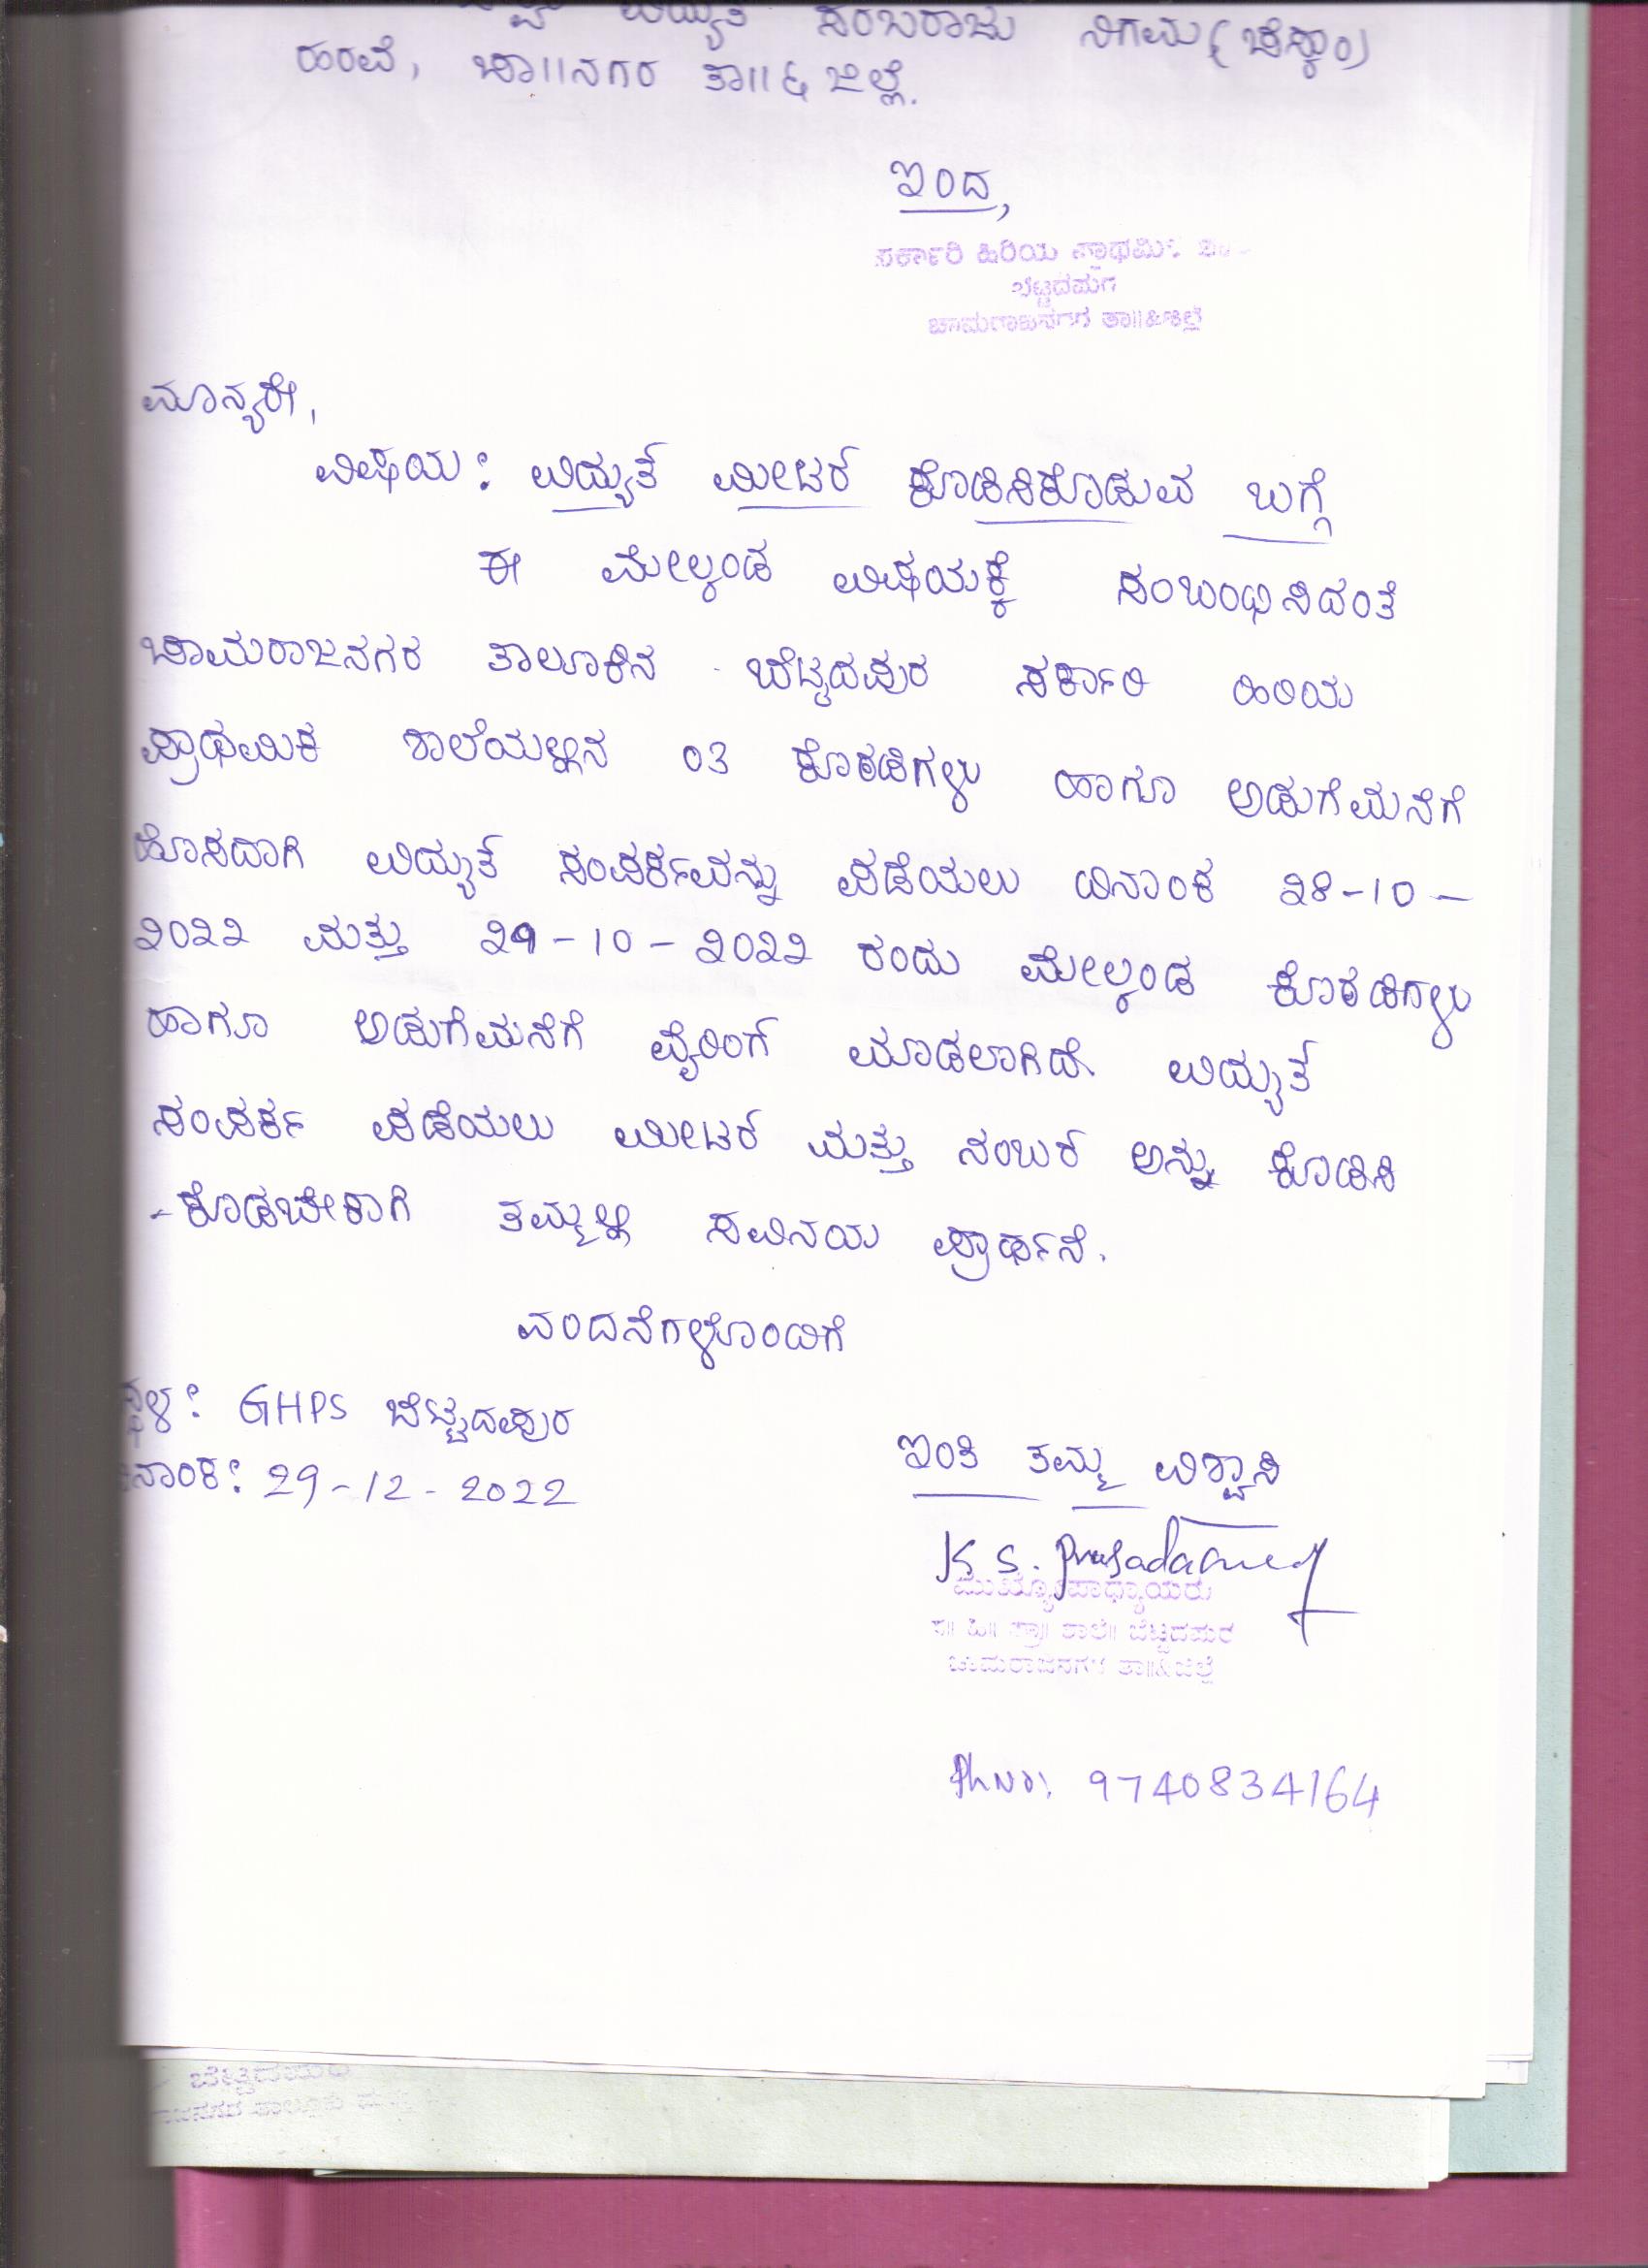 ವಿದ್ಯುತ್ ಸರಬರಾಜು ನಿಗಮ (ಚೆಸ್ಕಾಂ)
ಹರವೆ, ಚಾ||ನಗರ ತಾ||& ಜಿಲ್ಲೆ.
ಇಂದ,
ಸರ್ಕಾರಿ ಹಿರಿಯ
ಬೆಟ್ಟದಪುರ
ಚಾಮರಾಜನಗರ ತಾ||&ಜಿಲ್ಲೆ
ಮಾನ್ಯರೇ,
ವಿಷಯ: ವಿದ್ಯುತ್ ಮೀಟರ್ ಕೊಡಿಸಿಕೊಡುವ ಬಗ್ಗೆ
ಈ ಮೇಲ್ಕಂಡ ವಿಷಯಕ್ಕೆ ಸಂಬಂಧಿಸಿದಂತೆ
ಚಾಮರಾಜನಗರ ತಾಲೂಕಿನ ಬೆಟ್ಟದಪುರ ಸರ್ಕಾರಿ ಹಿರಿಯ
ಪ್ರಾಥಮಿಕ ಶಾಲೆಯಲ್ಲಿನ 03 ಕೊಠಡಿಗಳು ಹಾಗೂ ಅಡುಗೆಮನೆಗೆ
ಹೊಸದಾಗಿ ವಿದ್ಯುತ್ ಸಂಪರ್ಕವನ್ನು ಪಡೆಯಲು ದಿನಾಂಕ 28-10-
2022 ಮತ್ತು 29-10-2022 ರಂದು ಮೇಲ್ಕಂಡ ಕೊಠಡಿಗಳು
ಹಾಗೂ ಅಡುಗೆಮನೆಗೆ ವೈರಿಂಗ್ ಮಾಡಲಾಗಿದೆ. ವಿದ್ಯುತ್
ಸಂಪರ್ಕ ಪಡೆಯಲು ಮೀಟರ್ ಮತ್ತು ನಂಬರ್ ಅನ್ನು ಕೊಡಿಸಿ
-ಕೊಡಬೇಕಾಗಿ ತಮ್ಮಲ್ಲಿ ಸವಿನಯ ಪ್ರಾರ್ಥನೆ.
ವಂದನೆಗಳೊಂದಿಗೆ
ಸ್ಥಳ: GHPS ಬೆಟ್ಟದಪುರ
ದಿನಾಂಕ: 29-12-2022
ಇಂತಿ ತಮ್ಮ ವಿಶ್ವಾಸಿ
K S.
ಮುಖ್ಯೋಪಾಧ್ಯಾಯರು
ಸ|| ಹಿ|| ಪ್ರಾ|| ಶಾಲೆ|| ಬೆಟ್ಟದಪುರ
ಚಾಮರಾಜನಗರ ತಾ||&ಜಿಲ್ಲೆ
Ph No: 9740834164
ಬೆಟ್ಟದಪುರ